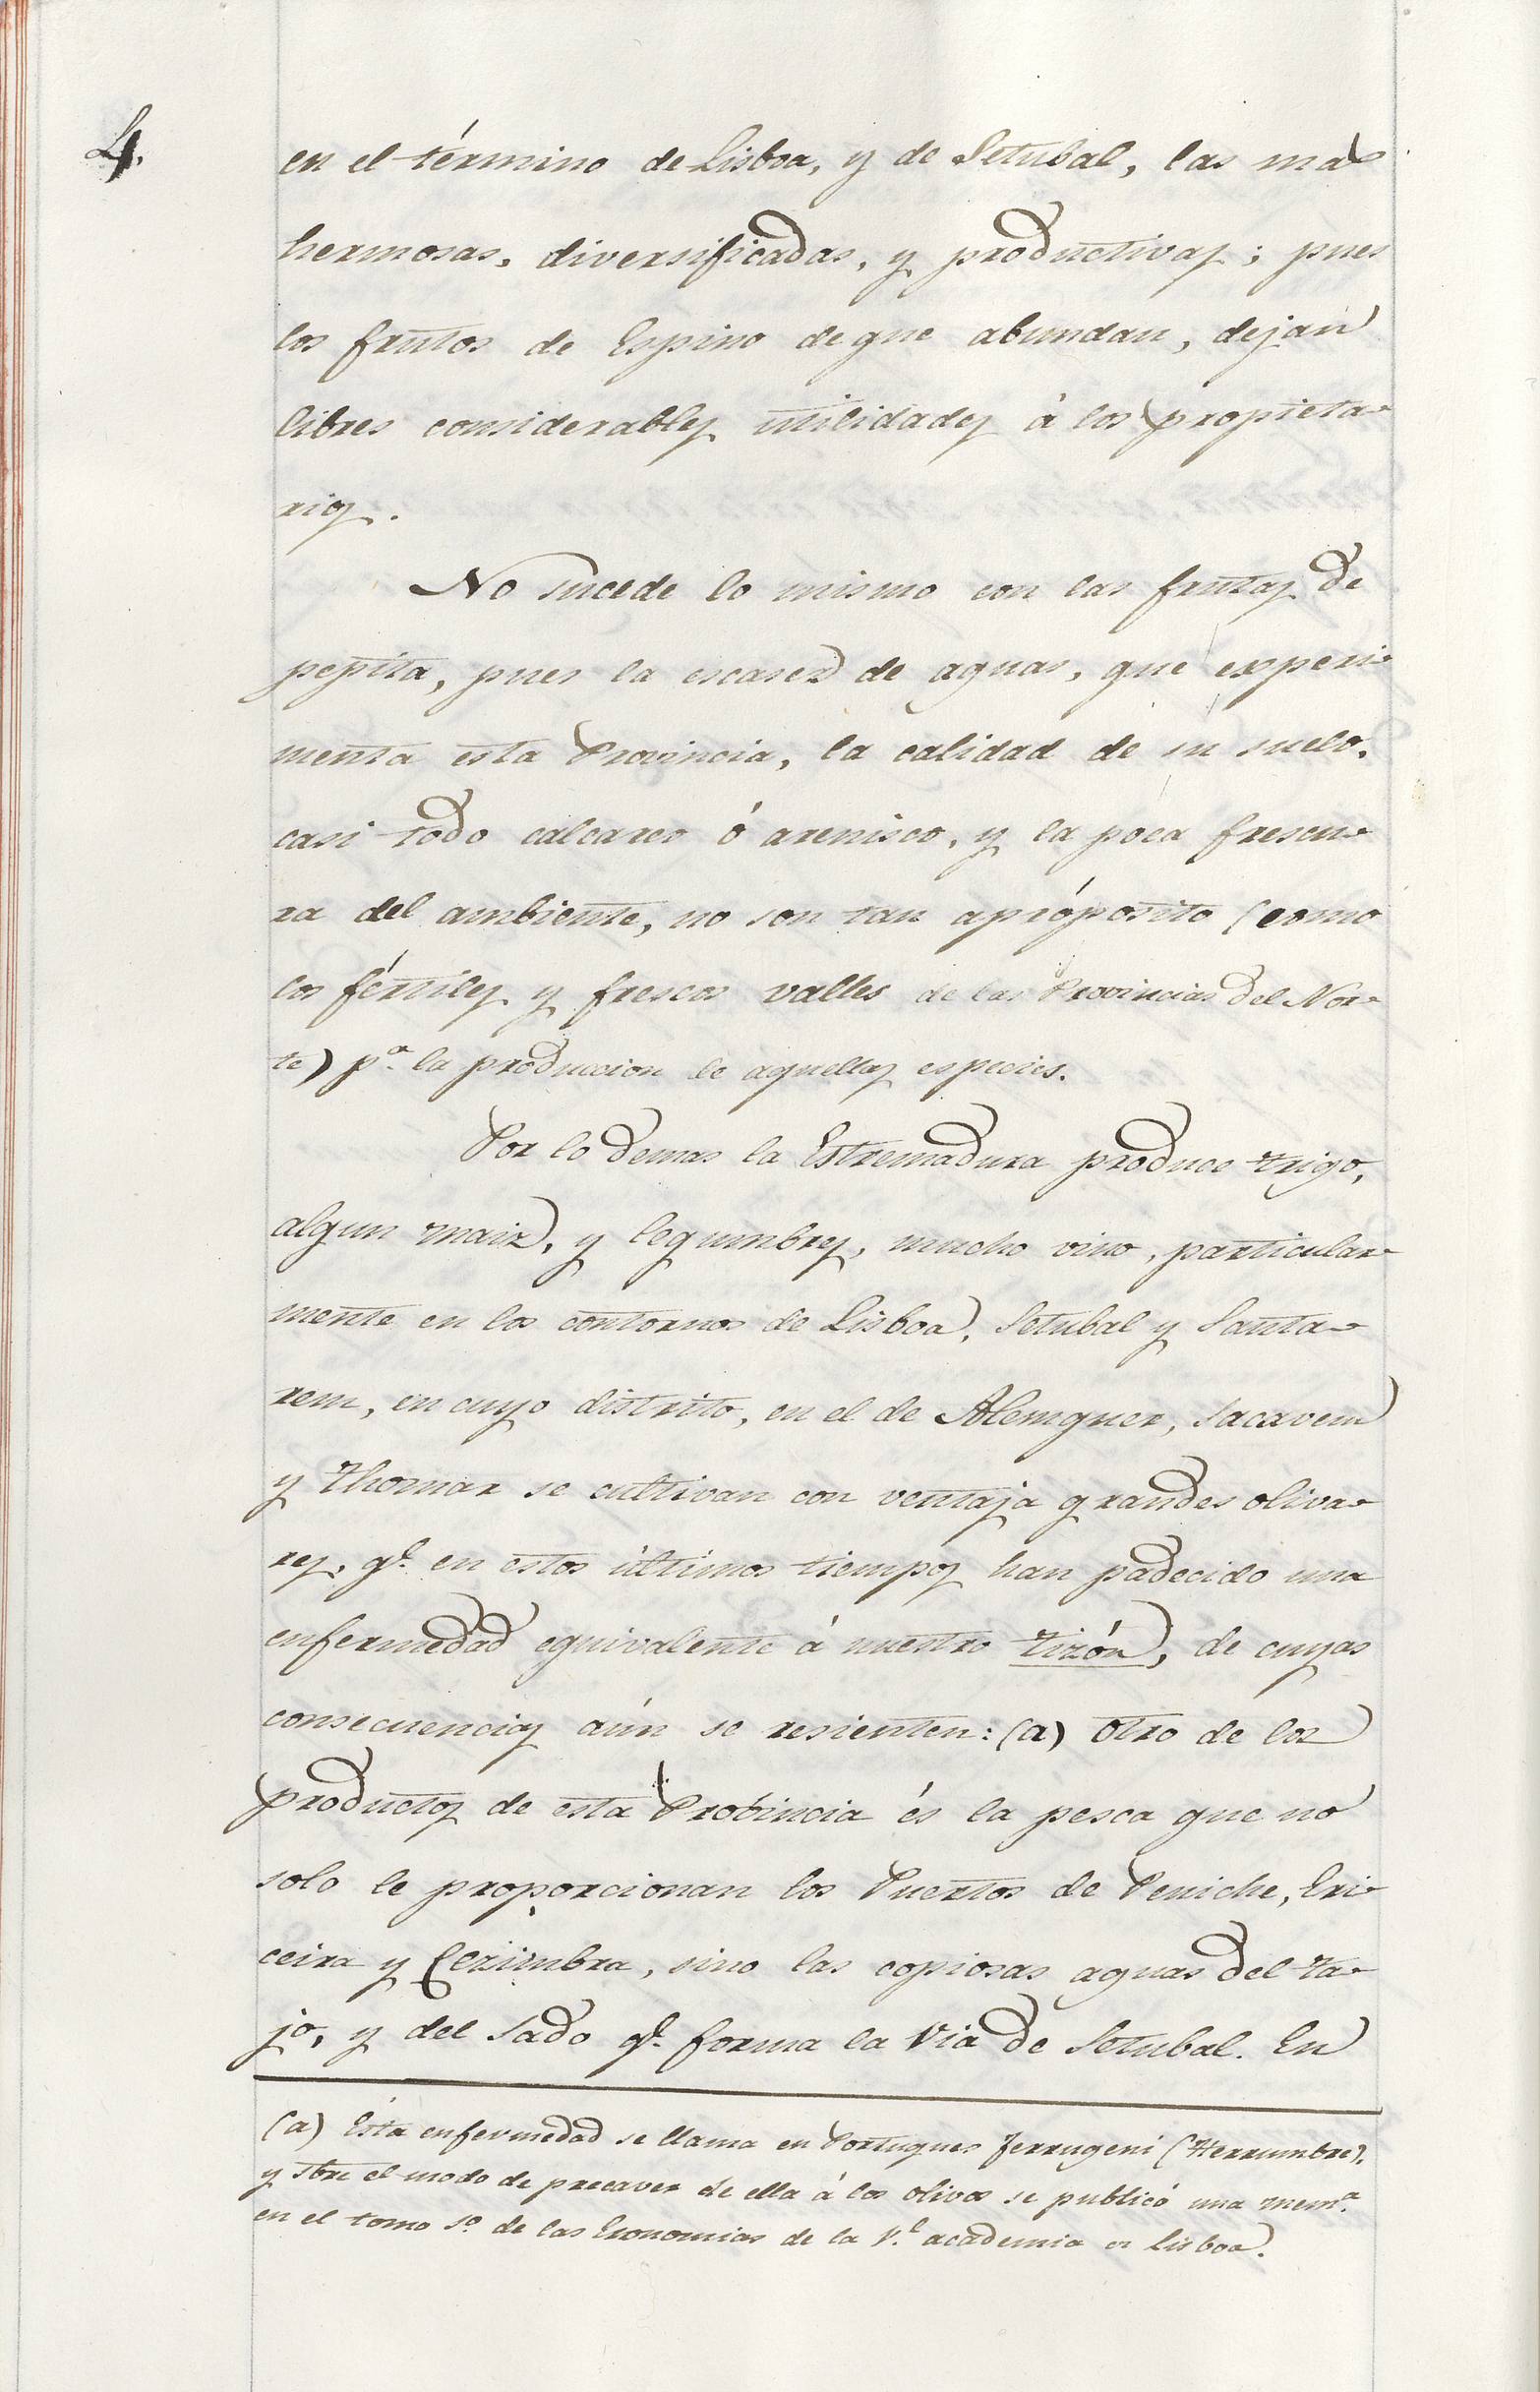 4.
en el término de Lisboa, y de Setubal, las mas
hermosas, diversificadas, y productivas; pues
los frutos de Espino de que abundan, dejan
libres considerables utilidades à los propieta-
rios.
No sucede lo mismo con las frutas de
pepita, pues la escasez de aguas, que experi-
menta esta Provincia, la calidad de su suelo,
casi todo calcareo ó arenisco, y la poca frescu-
ra del ambiente, no son tan apróposito (como
los fértiles y frescos valles de las Provincias del Nor-
te) pª. la produccion de aquellas especies.
Por lo demas la Estremadura produce trigo,
algun maiz, y legumbres, mucho vino, particular-
mente en los contornos de Lisboa, Setubal y Santa-
rem, en cuyo distrito, en el de Alemquer, Sacavem
y Thomar se cultivan con ventaja grandes oliva-
res, qe. en estos últimos tiempos han padecido una
enfermedad equivalente á nuestro tizón, de cuyas
consecuencias aún se resienten: (a) otro de los
productos de esta Próvincia és la pesca que no
solo le proporcionan los Puertos de Peniche, Eri-
ceira y Cezimbra, sino las copiosas aguas del Ta-
jo, y del Sado qe. forma la Via de Setubal. En
(a) Esta enfermedad se llama en Portugues Ferrugeni (Herrumbre),
y sbre el modo de precaver de ella á los olivos se publicó una memª.
en el tomo 5º. de las Economias de la Rl. academia de Lisboa.